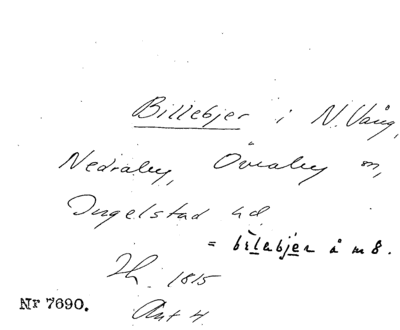 Billebjer i N. Vång,
Nedraby, Övraby m,
Ingelstad hd
= bilabjer å m 8.
Jh. 1815
Akt 4
Nr 7690.